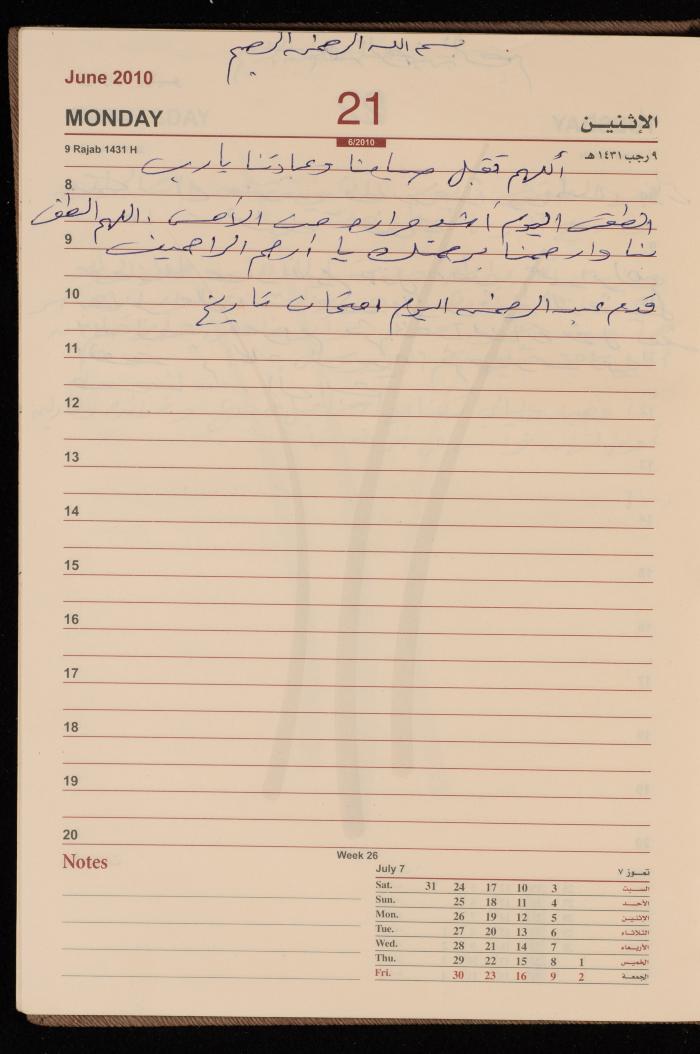 بسم الله الرحمن الرحيم
June 2010
MONDAY 21 الإثنين
6/2010
9 Rajab 1431 H ٩ رجب ١٤٣١ هـ
أللهم تقبل صيامنا وعبادتنا يا رب
8
الطقس اليوم أشد حراره من الأمس . اللهم الطف
بنا وارحمنا برحمتك يا أرحم الراحمين
9
10
قدم عبد الرحمن اليوم امتحان تاريخ
11
12
13
14
15
16
17
18
19
20
Notes
Week 26
July 7 تمـوز ٧
Sat. 31 24 17 10 3 السبت
Sun. 25 18 11 4 الأحـد
Mon. 26 19 12 5 الاثنين
Tue. 27 20 13 6 الثلاثاء
Wed. 28 21 14 7 الأربعاء
Thu. 29 22 15 8 1 الخميس
Fri. 30 23 16 9 2 الجمعة